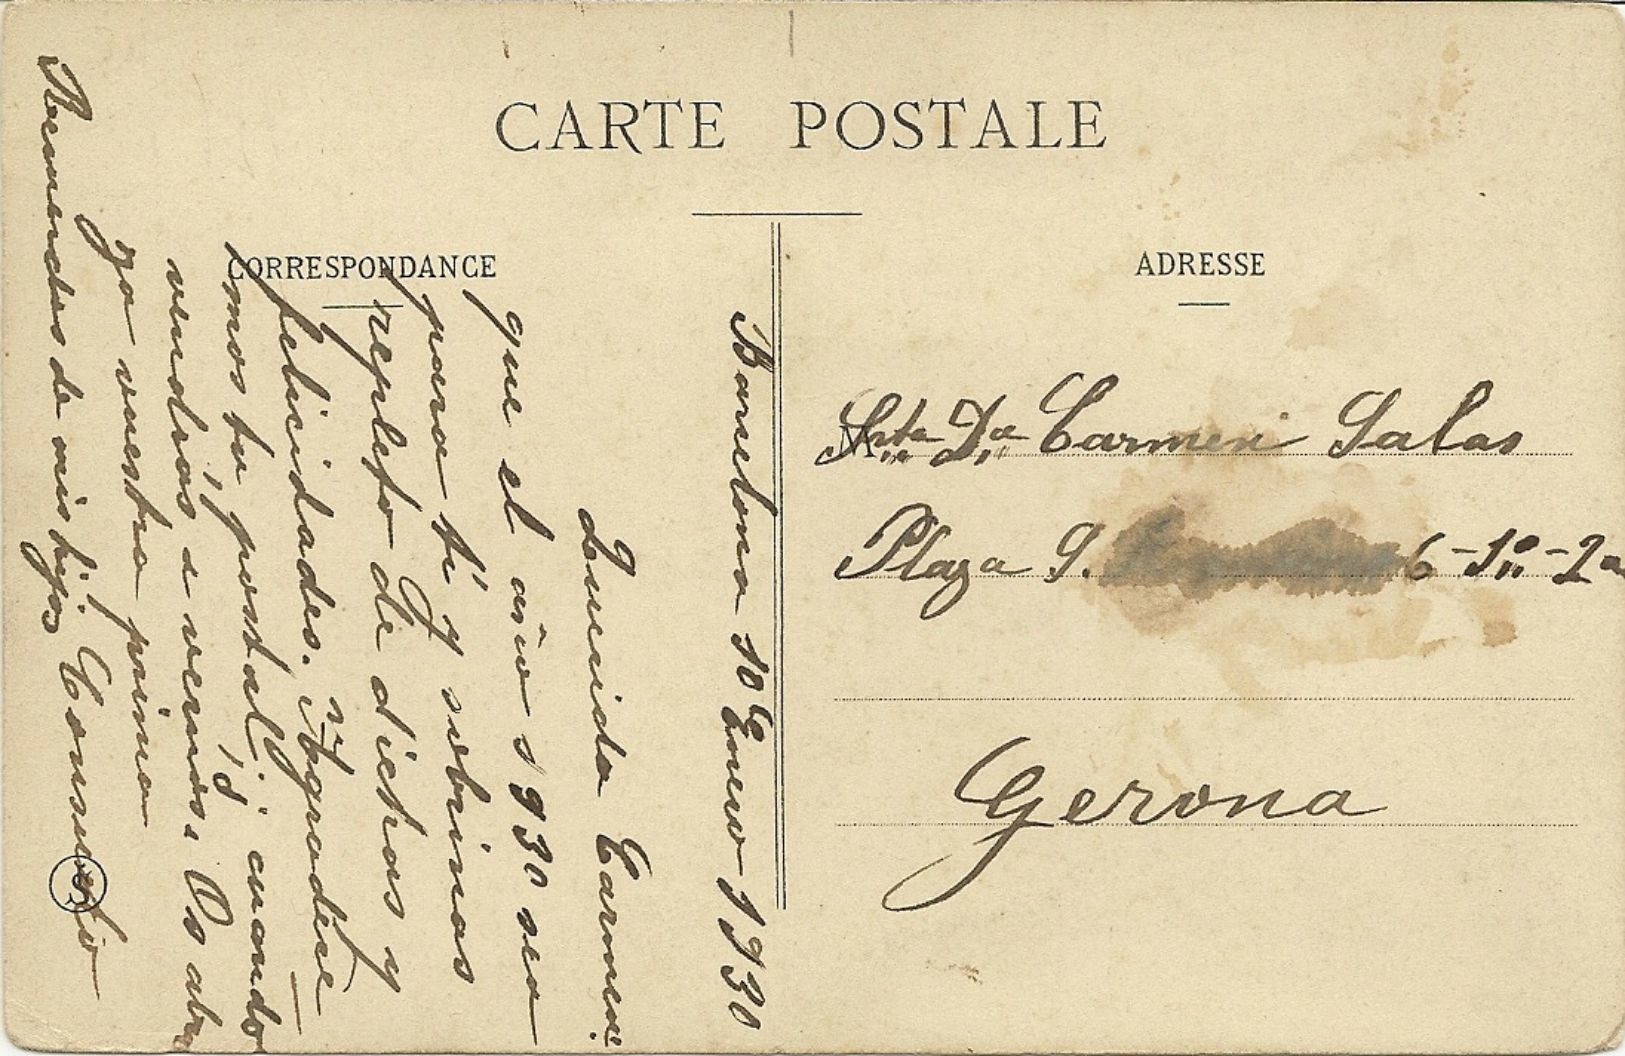 CARTE POSTALE
CORRESPONDANCE
ADRESSE
Barcelona 10 Enero 1930
Querida Carmen:
que el año 1930 sea
para ti y sobrinas
repleto de dichas y
felicidades. Agradece-
mos tu postal; ¿cuando
vendrás a vernos? Os abra
za vuestra prima
Consuelo
Recuerdos de mis hijos
Srta Dª Carmen Salas
Plaza S. 6-1º-2ª
Gerona